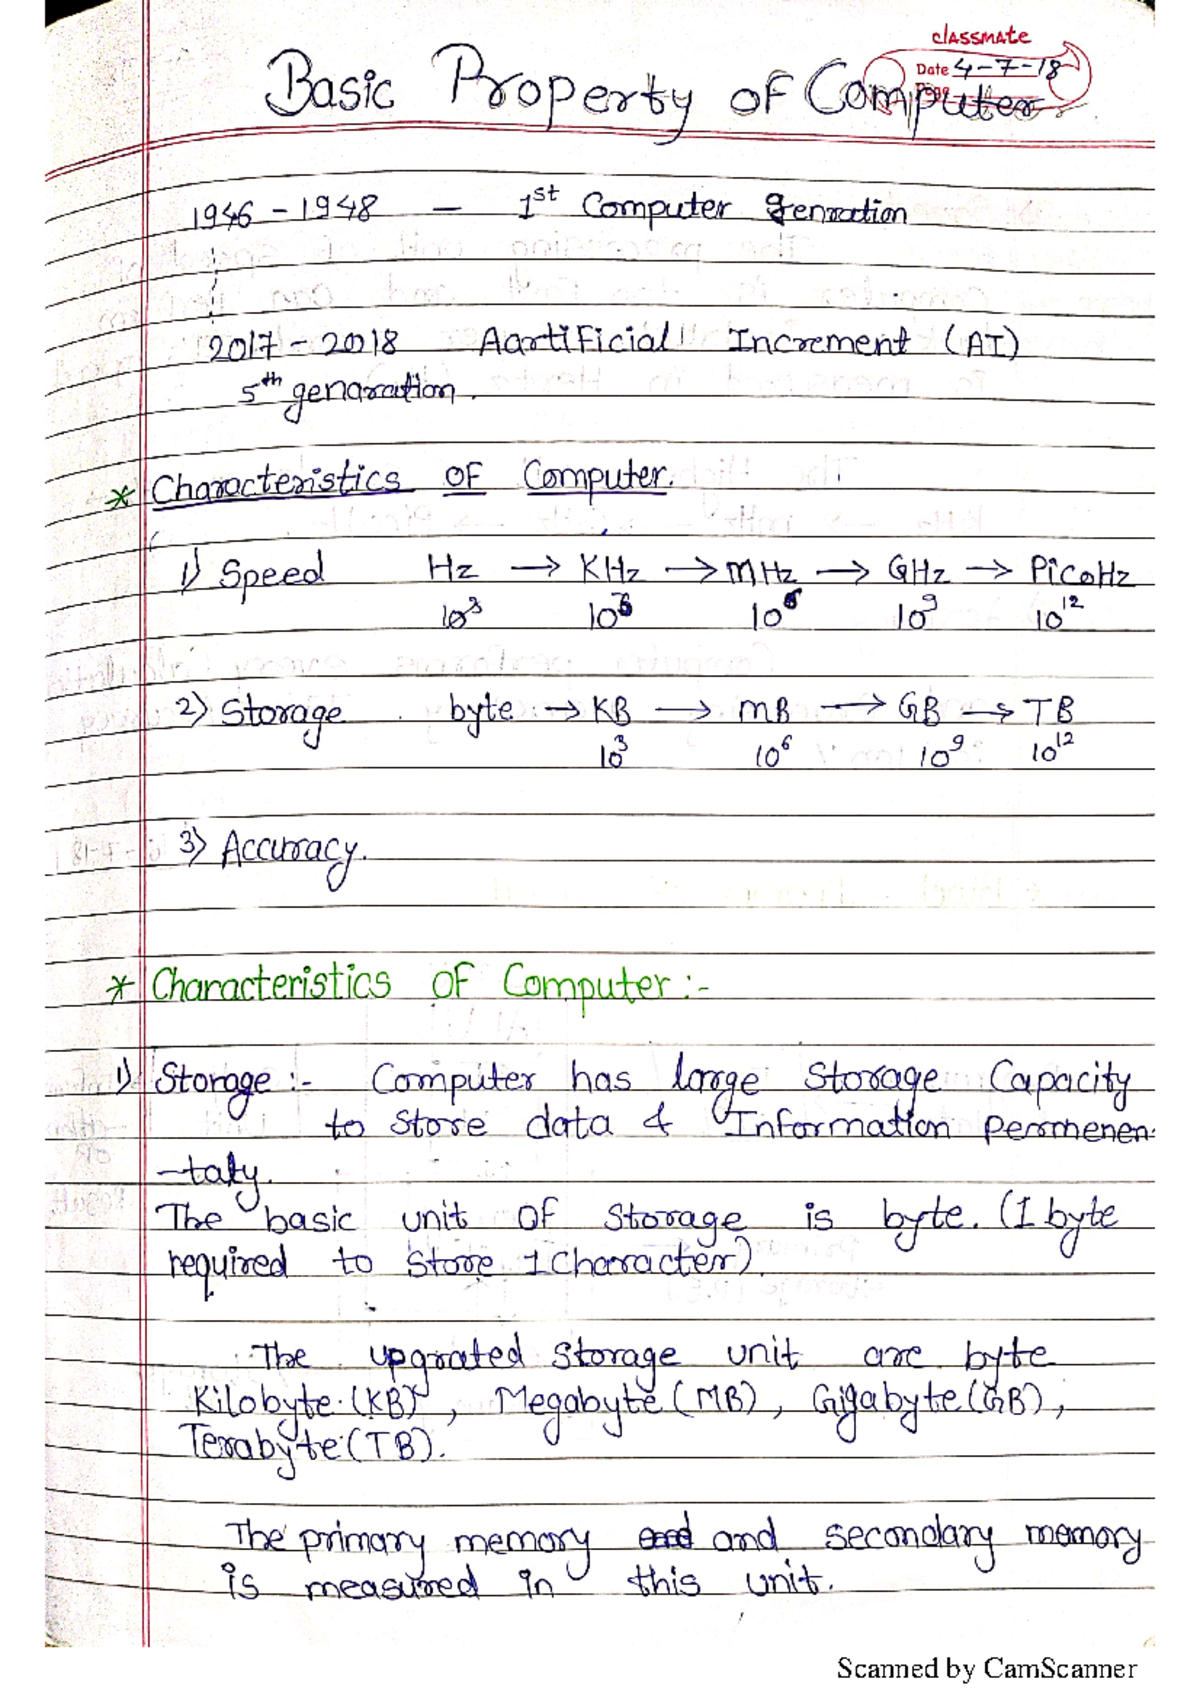 classmate
Date 4-7-18
Page
Basic Property of Computer
1946 - 1948 - 1st Computer genration
2017 - 2018 Aartificial Increment (AI)
5th genaration.
* Characteristics of Computer.
1) Speed Hz → KHz → MHz → GHz → PicoHz
10³ 10⁶ 10⁶ 10⁹ 10¹²
2) Storage byte → KB → MB → GB → TB
10³ 10⁶ 10⁹ 10¹²
3) Accuracy.
* Characteristics of Computer :-
1) Storage :- Computer has large Storage Capacity
to store data & Information permenen-
-taly.
The basic unit of storage is byte. (1 byte
required to store 1 Character).
The upgrated storage unit are byte
Kilobyte (KB), Megabyte (MB), Gigabyte (GB),
Terabyte (TB).
The primary memory and secondary memory
is measured in this unit.
Scanned by CamScanner